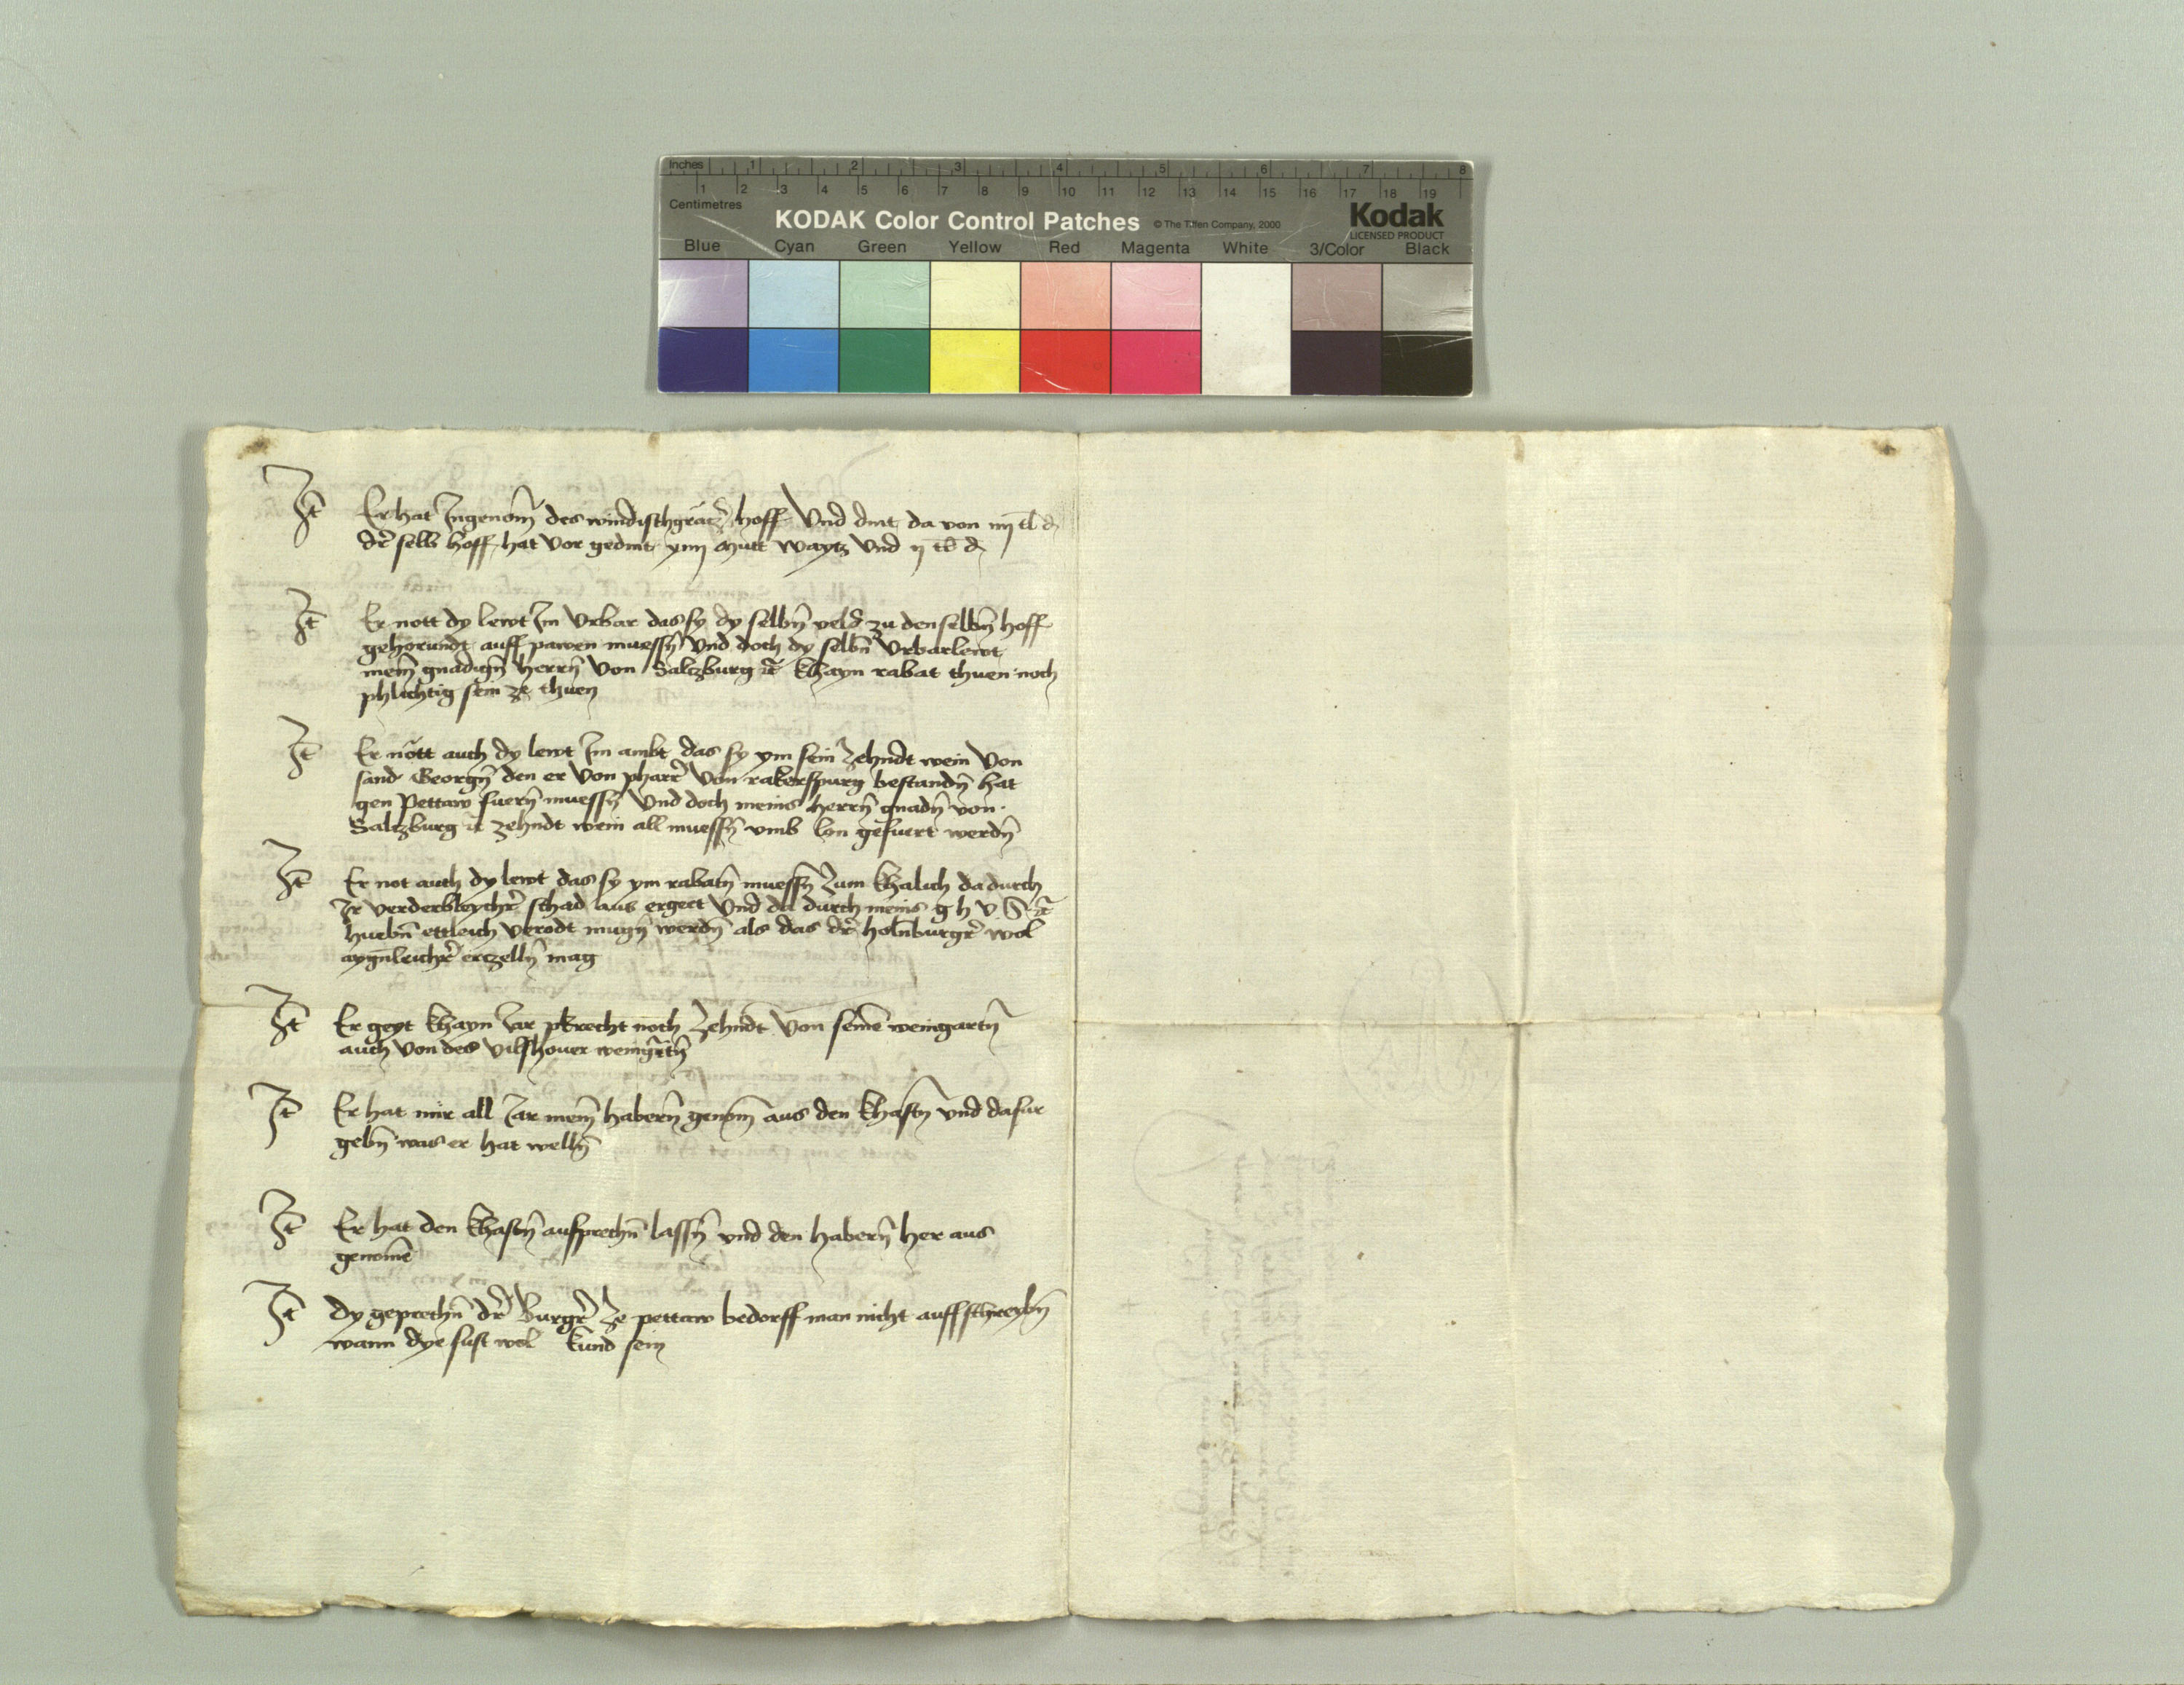 Inches 1 2 3 4 5 6 7 8
1 2 3 4 5 6 7 8 9 10 11 12 13 14 15 16 17 18 19
Centimetres
KODAK Color Control Patches © The Tiffen Company, 2000 Kodak
LICENSED PRODUCT
Blue Cyan Green Yellow Red Magenta White 3/Color Black
It̄ Er hat Ingenom̄ des windischgrätz̄ hoff Vnd dint da von iiij tl d
der̄ selb hoff hat vor gedint xiiij Mutt waytz Vnd ij tl d
It̄ Er nott dy lewt Im Vrbar das sy dy selbn̄ veld zu denselbn̄ hoff
gehorundt auff pawen muessn̄ Vnd doch dy selbn̄ Vrbarlewt
mein̄ gnadign̄ herrn̄ von Saltzburg etc̄ khayn rabat thuen noch
phlichtig sein ze thuen
It̄ Er nött auch dy lewt Im ambt das sy ym sein Zehndt wein Von
sand Georgn̄ den er Von pharr̄ Von rakerspurg bestandn̄ hat
gen Pettaw fuern̄ muessn̄ Vnd doch meins herrn̄ gnadn̄ von
Saltzburg etc̄ zehndt wein all muessn̄ vmb lon gefuert werdn̄
It̄ Er not auch dy lewt das sy ym rabatn̄ muessn̄ Zum khalich da durch
Ir verderbleychr̄ schad aus ergeet Vnd da durch meins g h v S etc̄
huebn̄ ettleich verodt mugn̄ werdn̄ als das dr̄ holnburgr̄ wol
aygnleichr̄ erczelln̄ mag
It̄ Er geyt khayn Iar pkrecht noch Zehndt Von seinē weingartn̄
auch Von des vilshouer weingrtn̄
It̄ Er hat mir all Iar mein̄ habern̄ genom̄ aus den khastn̄ vnd dafur
gebn̄ was er hat welln̄
It̄ Er hat den khastn̄ aufprechn̄ lassn̄ vnd den habern̄ her aus
genomē
It̄ Dy geprechn̄ dr̄ Burgr̄ Ze pettaw bedorff man nicht auffschreybn̄
wann dye sust wol kund sein